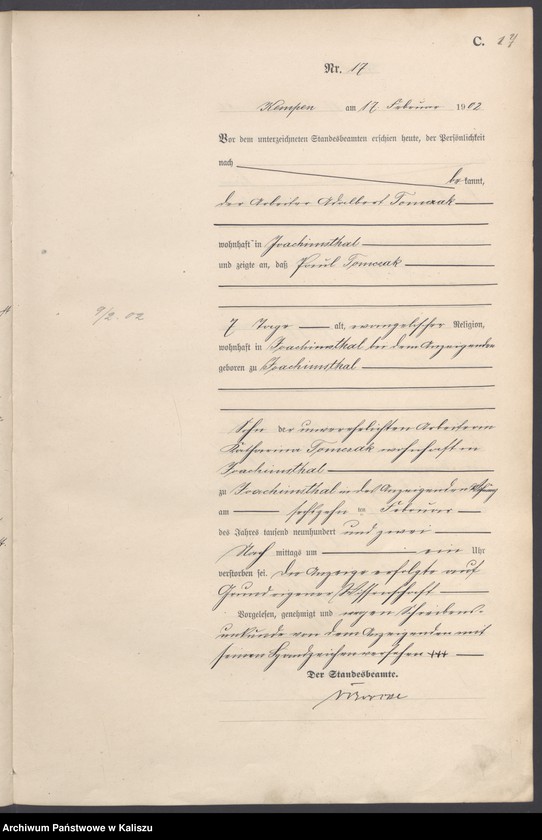 C. 17
Nr. 17
Kempen am 17 Februar 1902
Vor dem unterzeichneten Standesbeamten erschien heute, der Persönlichkeit
nach
be kannt,
der Arbeiter Adalbert Tomczak
wohnhaft in Joachimsthal
und zeigte an, daß Paul Tomczak
9/2. 02
7 Tage alt, evangelischer Religion,
wohnhaft in Joachimsthal bei dem Anzeigenden
geboren zu Joachimsthal
Sohn der unverehelichten Arbeiterin
Katharina Tomczak wohnhaft in
Joachimsthal
zu Joachimsthal in des Anzeigenden Wohnung
am sechszehn ten Februar
des Jahres tausend neunhundert und zwei
Nach mittags um ein Uhr
verstorben sei. Die Anzeige erfolgte auf
Grund eigener Wissenschaft
Vorgelesen, genehmigt und wegen Schreibens-
unkunde von dem Anzeigenden mit
seinen Handzeichen versehen +++
Der Standesbeamte.
Archiwum Państwowe w Kaliszu